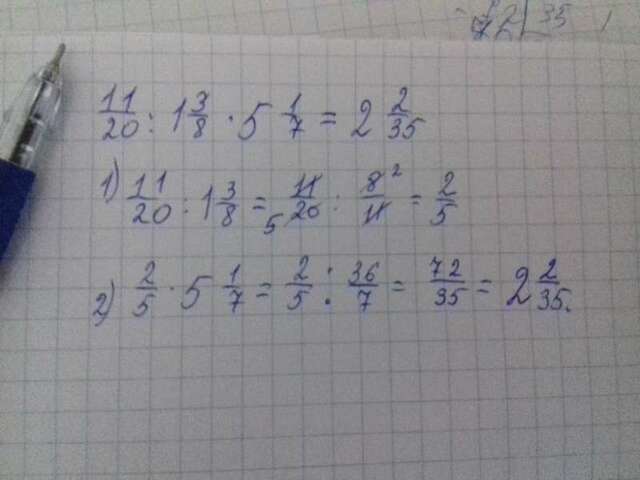 72 35
11/20 : 1 3/8 · 5 1/7 = 2 2/35
1) 11/20 : 1 3/8 = 11/20 : 8/11 = 2/5
5 2
2) 2/5 · 5 1/7 = 2/5 : 36/7 = 72/35 = 2 2/35.